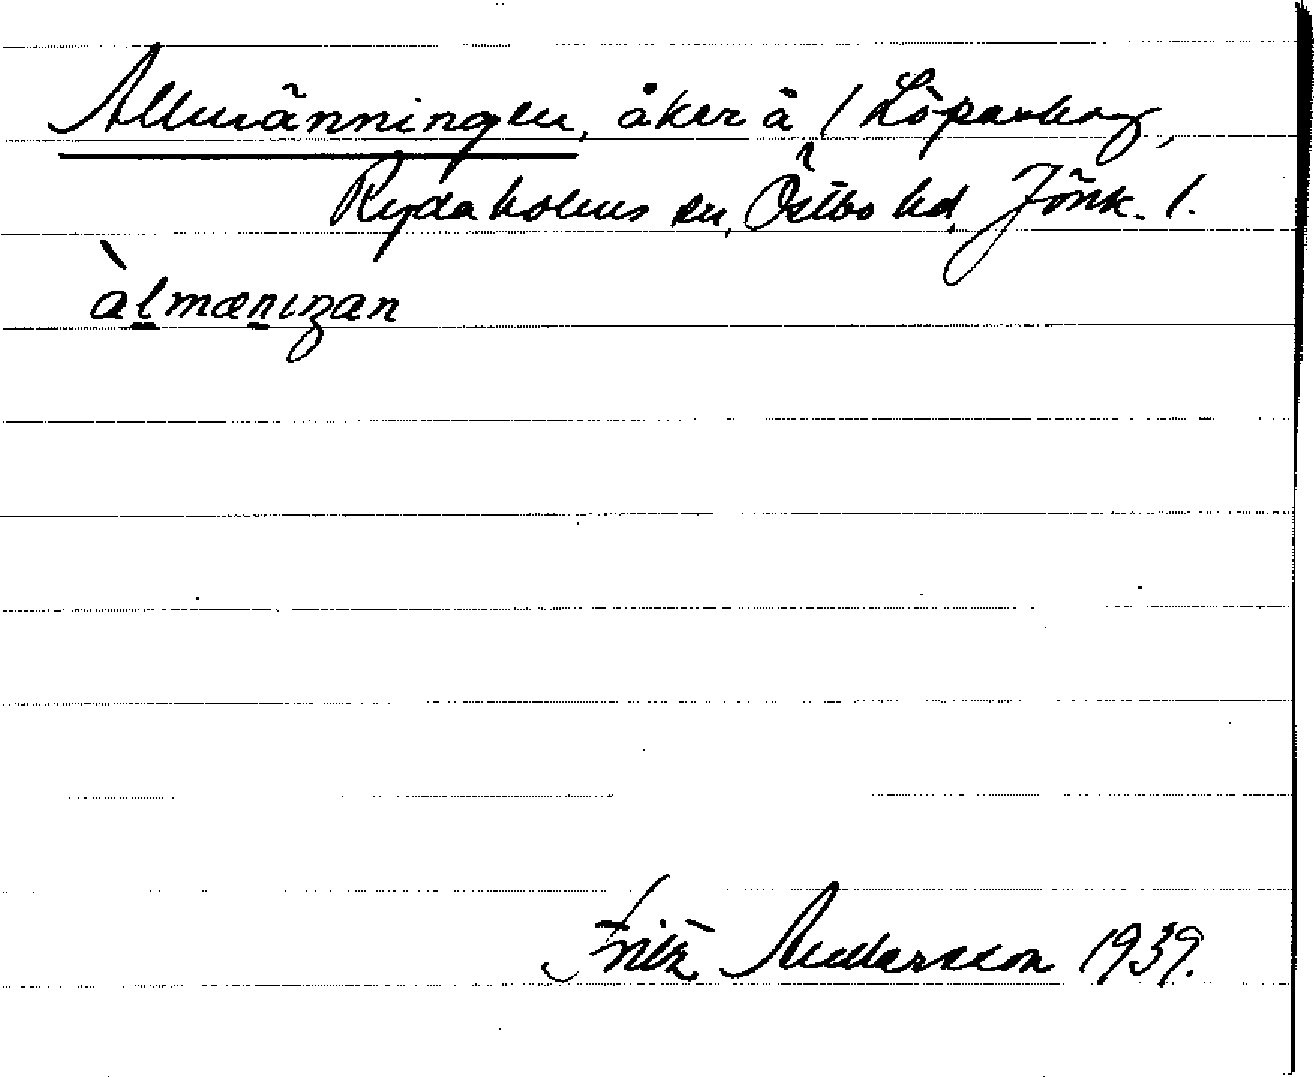 Allmänningen, åker å / Löpanberg,
Rydaholms sn, Östbo hd, Jönk. l.
àlmænıŋan
Fritz Andersson 1939.